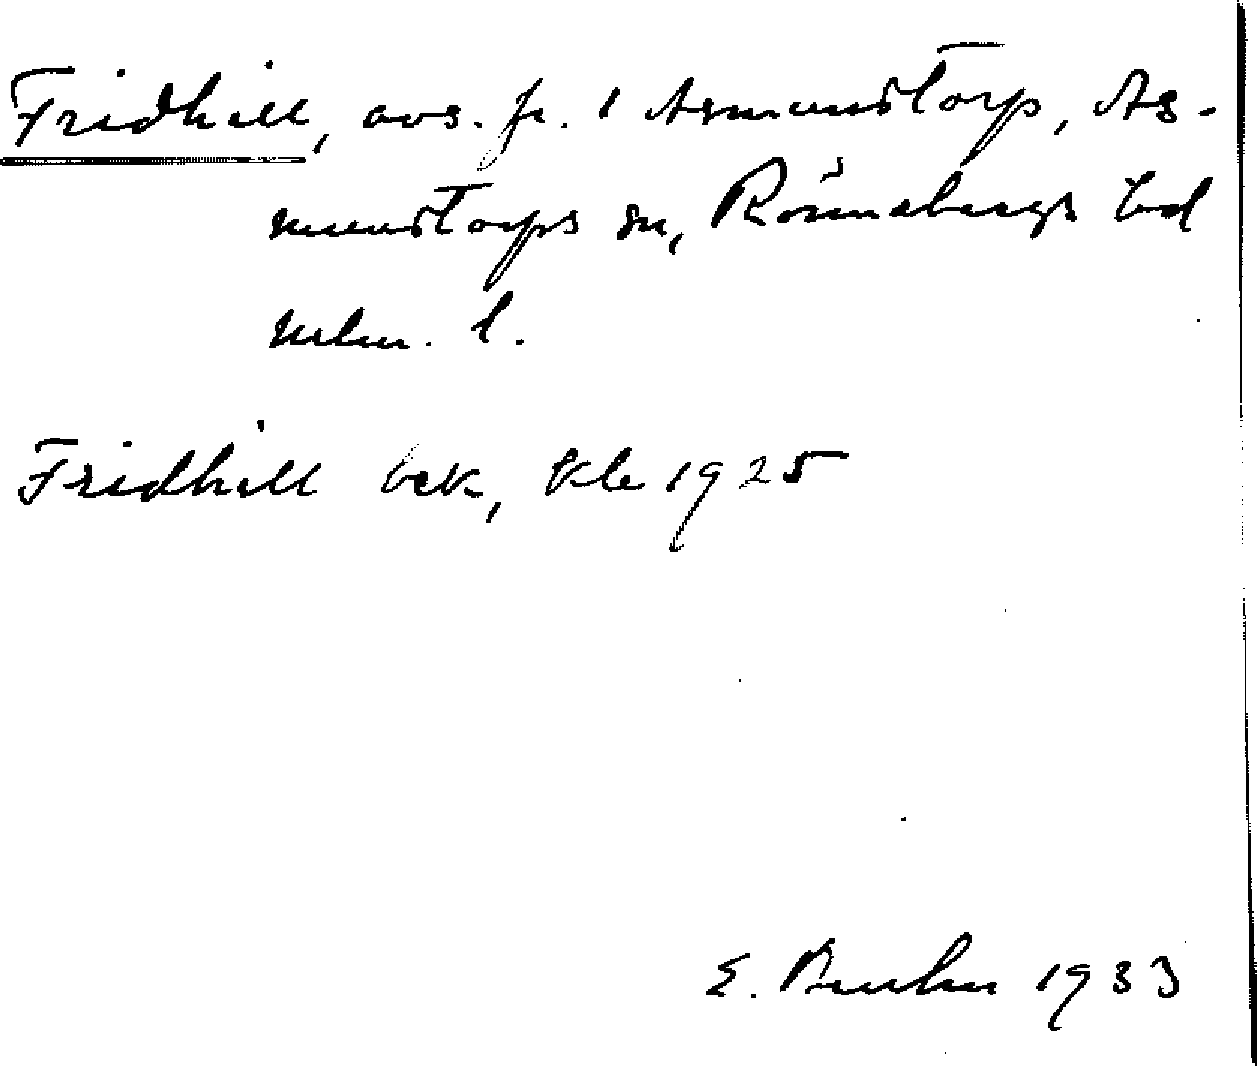 Fridhill, avs. fr. 1 Asmundstorp, As-
mundstorps sn, Rönnebergs hd
Mlm. l.
Fridhill bek, Kle 1925
E. Bruhn 1933